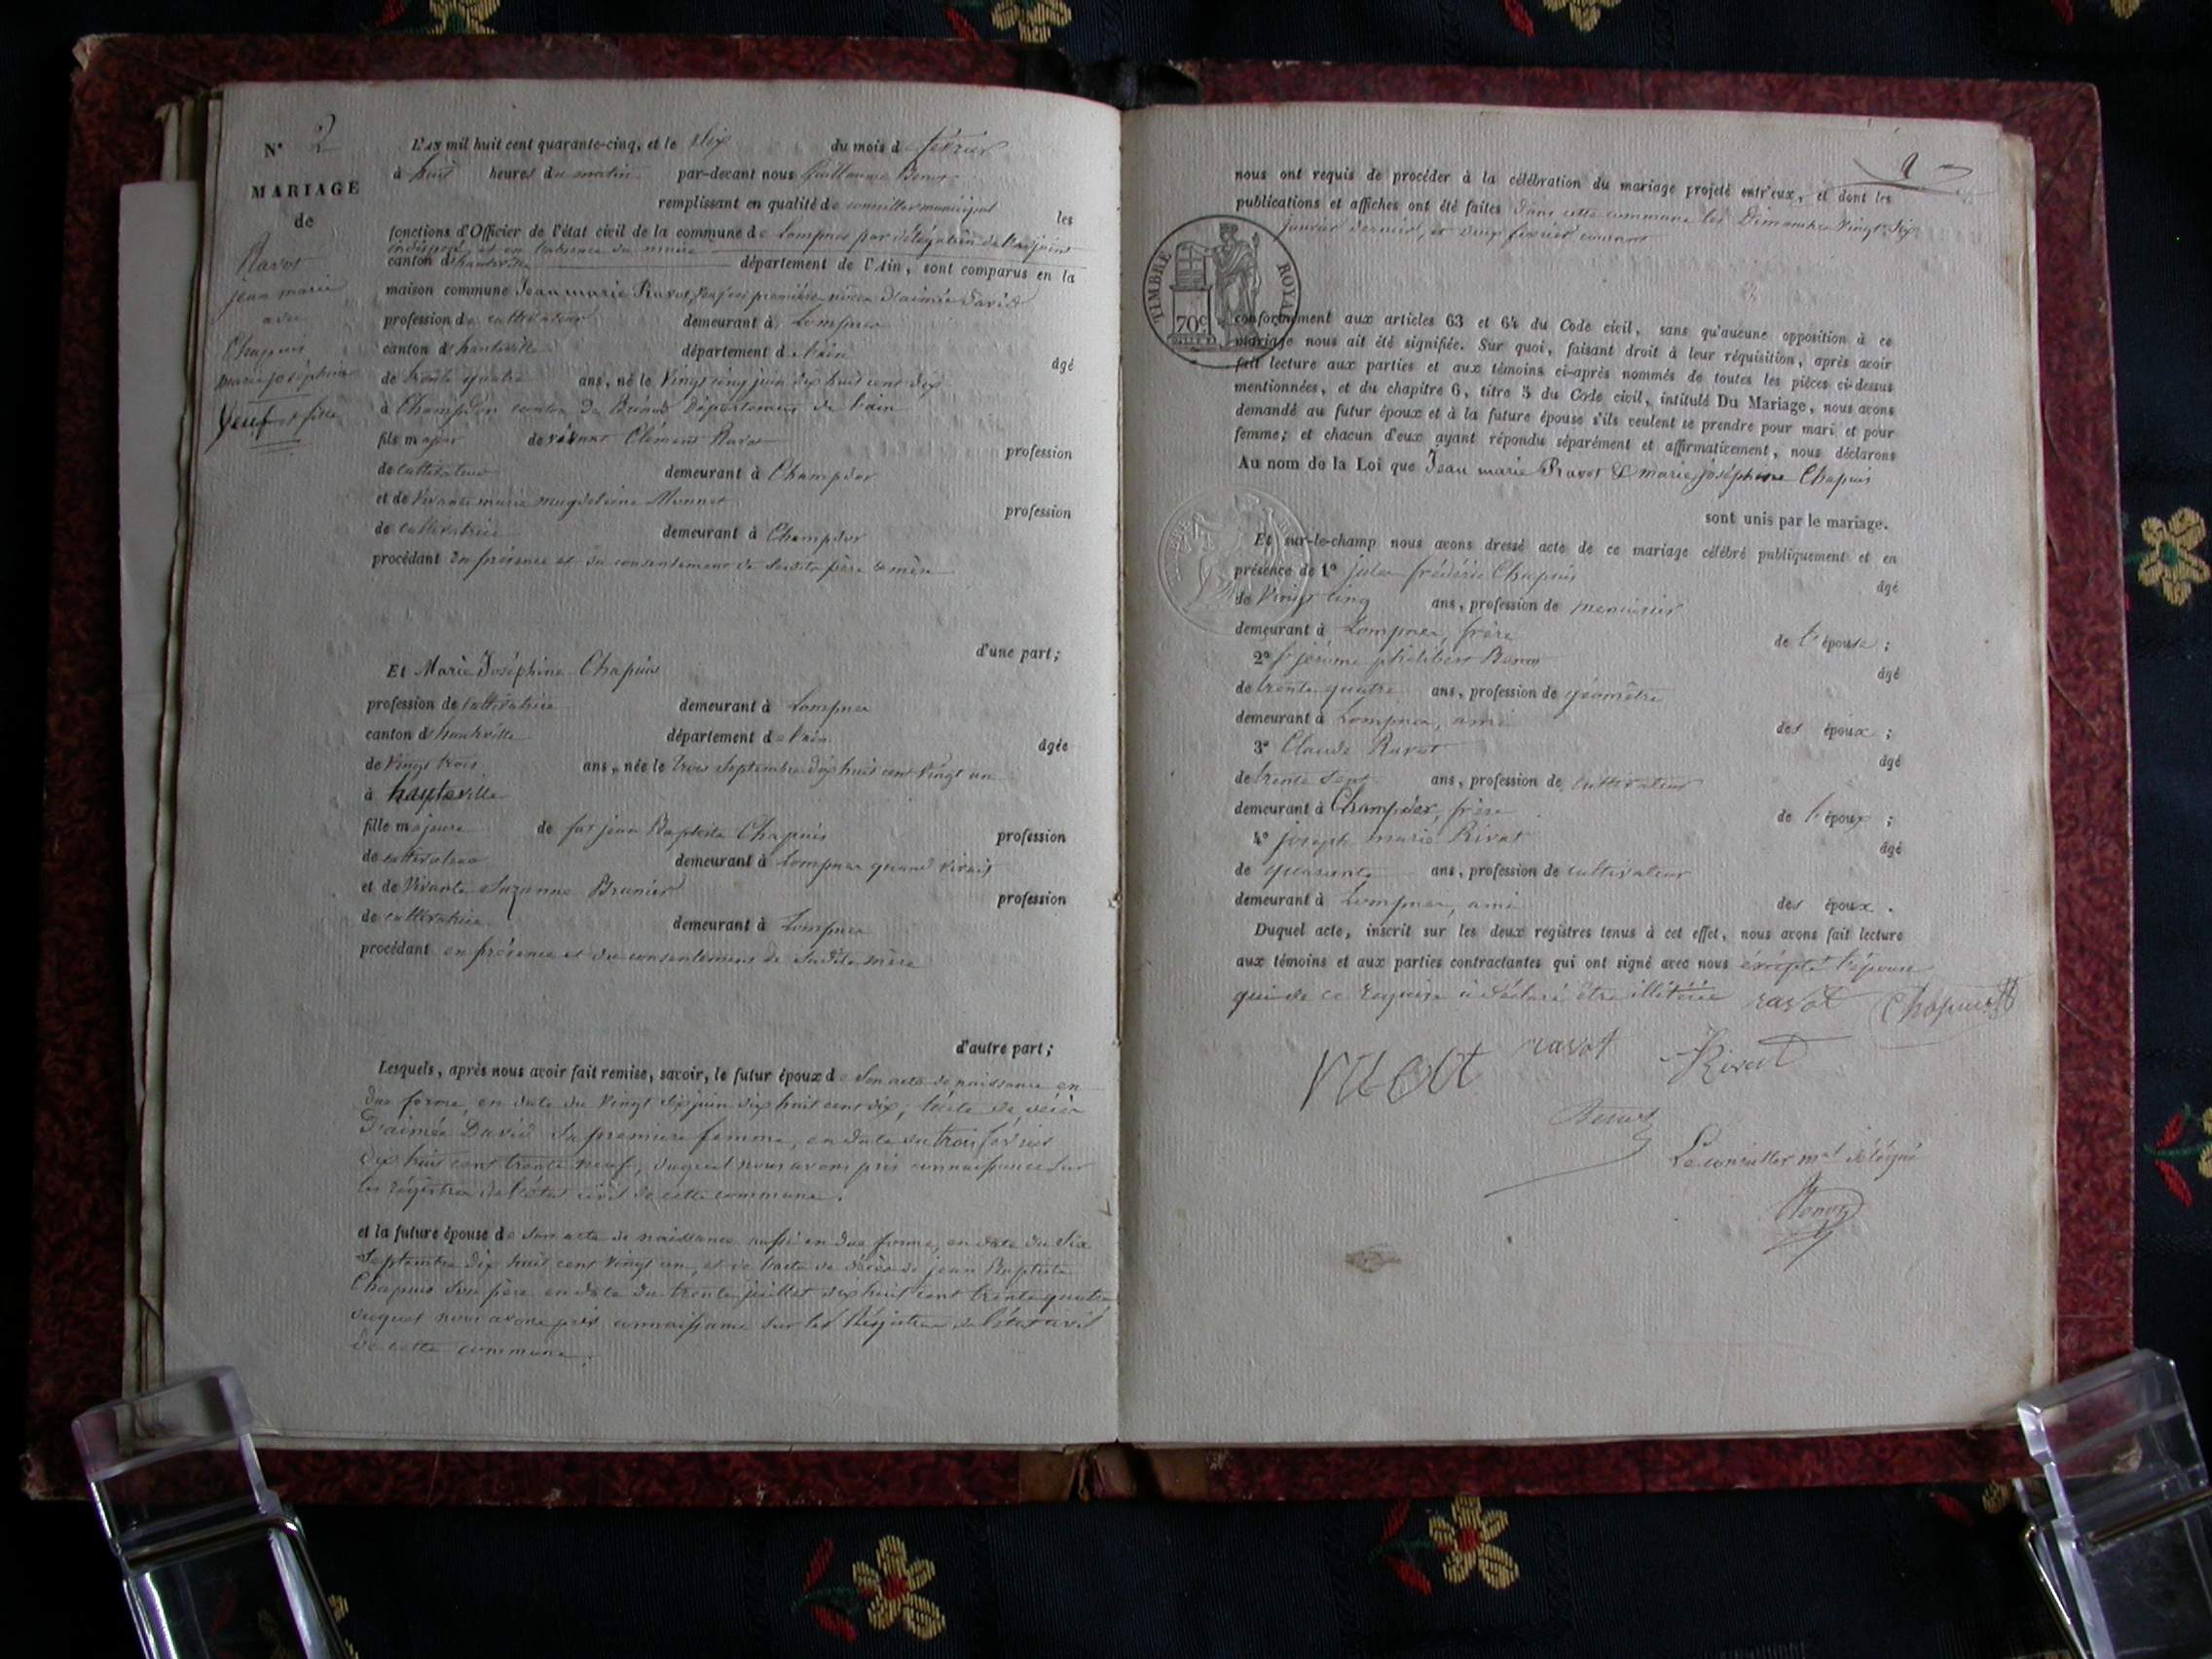 N° 2
MARIAGE
de
Ravot
jean marie
avec
Chapuis
marie joséphine
Veuf et fille
L'AN mil huit cent quarante-cinq, et le dix du mois de février
à huit heures du matin par-devant nous Guillaume Benot
remplissant en qualité de conseiller municipal les
fonctions d'Officier de l'état civil de la commune de Lompnes par délégation de l'adjoint
indisposé et en l'absence du maire
canton d'hauteville département de l'Ain, sont comparus en la
maison commune Jean marie Ravot, veuf en première noces d'aimée David
profession de cultivateur demeurant à Lompnes
canton d'hauteville département de l'Ain âgé
de trente quatre ans, né le Vingt cinq juin dix huit cent dix
à Champdor canton de Brénod Département de l'ain
fils majeur de vivant Clément Ravot profession
de cultivateur demeurant à Champdor
et de Vivante marie magdeleine Monnet profession
de cultivatrice demeurant à Champdor
procédant en présence et du consentement de sesdits père & mère
d'une part;
Et Marie Joséphine Chapuis
profession de cultivatrice demeurant à Lompnes
canton d'hauteville département de l'ain âgée
de Vingt trois ans, née le trois Septembre dix huit cent Vingt un
à hauteville
fille majeure de feu jean Baptiste Chapuis profession
de cultivateur demeurant à Lompnes quand vivait
et de Vivante Suzanne Brunier profession
de cultivatrice demeurant à Lompnes
procédant en présence et du consentement de Sadite mère
d'autre part;
Lesquels, après nous avoir fait remise, savoir, le futur époux de Son acte de naissance en
due forme, en date du Vingt six juin dix huit cent dix; l'acte de décès
D'aimée David Sa première femme, en date du trois février
dix huit cent trente neuf, duquel nous avons pris connaissance Sur
les régistres de l'état civil de cette commune.
et la future épouse de Son acte de naissance aussi en due forme, en date du Six
Septembre dix huit cent Vingt un, et de l'acte de décès de jean Baptiste
Chapuis Son père en date du trente juillet dix huit cent trente quatre
duquel nous avons pris connaissance Sur les Régistres de l'état civil
de cette commune.
nous ont requis de procéder à la célébration du mariage projeté entr'eux, et dont les
publications et affiches ont été faites Dans cette commune les Dimanches Vingt Six
janvier dernier, et deux février courant
TIMBRE ROYAL
70c
conformément aux articles 63 et 64 du Code civil, sans qu'aucune opposition à ce
mariage nous ait été signifiée. Sur quoi, faisant droit à leur réquisition, après avoir
fait lecture aux parties et aux témoins ci-après nommés de toutes les pièces ci-dessus
mentionnées, et du chapitre 6, titre 5 du Code civil, intitulé Du Mariage, nous avons
demandé au futur époux et à la future épouse s'ils veulent se prendre pour mari et pour
femme; et chacun d'eux ayant répondu séparément et affirmativement, nous déclarons
Au nom de la Loi que Jean marie Ravot & marie joséphine Chapuis
sont unis par le mariage.
Et sur-le-champ nous avons dressé acte de ce mariage célébré publiquement et en
présence de 1° jules frédéric Chapuis âgé
de Vingt cinq ans, profession de menuisier
demeurant à Lompnes, frère de l'épouse;
2° jérome philibert Benot âgé
de trente quatre ans, profession de géomètre
demeurant à Lompnes, ami des époux;
3° Claude Ravot âgé
de trente Sept ans, profession de cultivateur
demeurant à Champdor, frère de l'époux;
4° joseph marie Rivat âgé
de quarante ans, profession de cultivateur
demeurant à Lompnes, ami des époux.
Duquel acte, inscrit sur les deux registres tenus à cet effet, nous avons fait lecture
aux témoins et aux parties contractantes qui ont signé avec nous excepté l'épouse
qui de ce requise a déclaré être illitérée ravot Chapuis
ravot Rivat
Benot
Le conseiller mal délégué
Benot